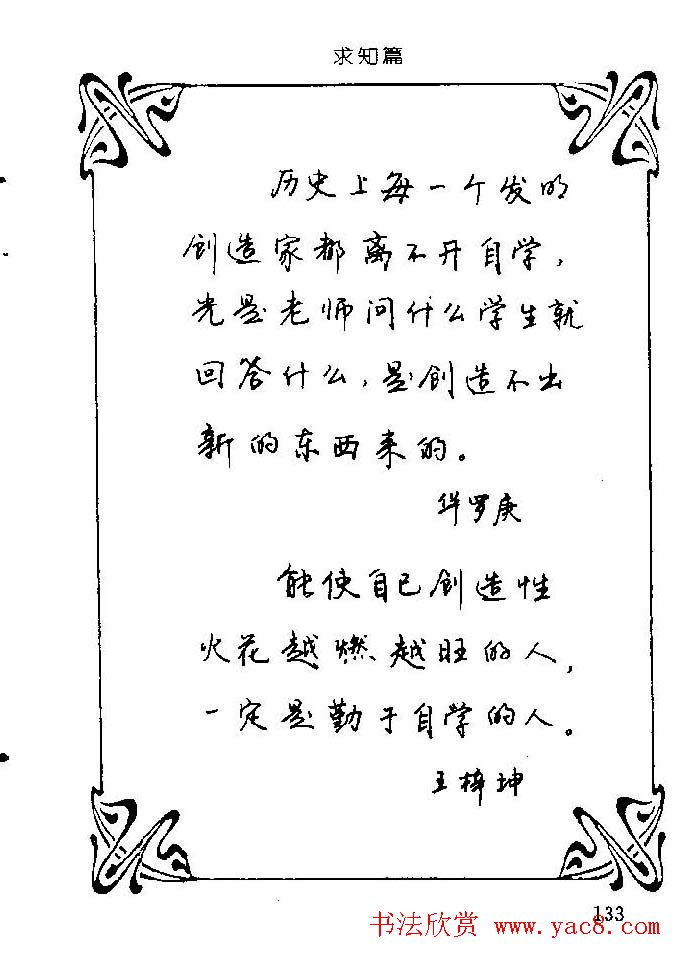 求知篇
历史上每一个发明
创造家都离不开自学，
光是老师问什么学生就
回答什么，是创造不出
新的东西来的。
华罗庚
能使自己创造性
火花越燃越旺的人，
一定是勤于自学的人。
王梓坤
133
书法欣赏 www.yac8.com